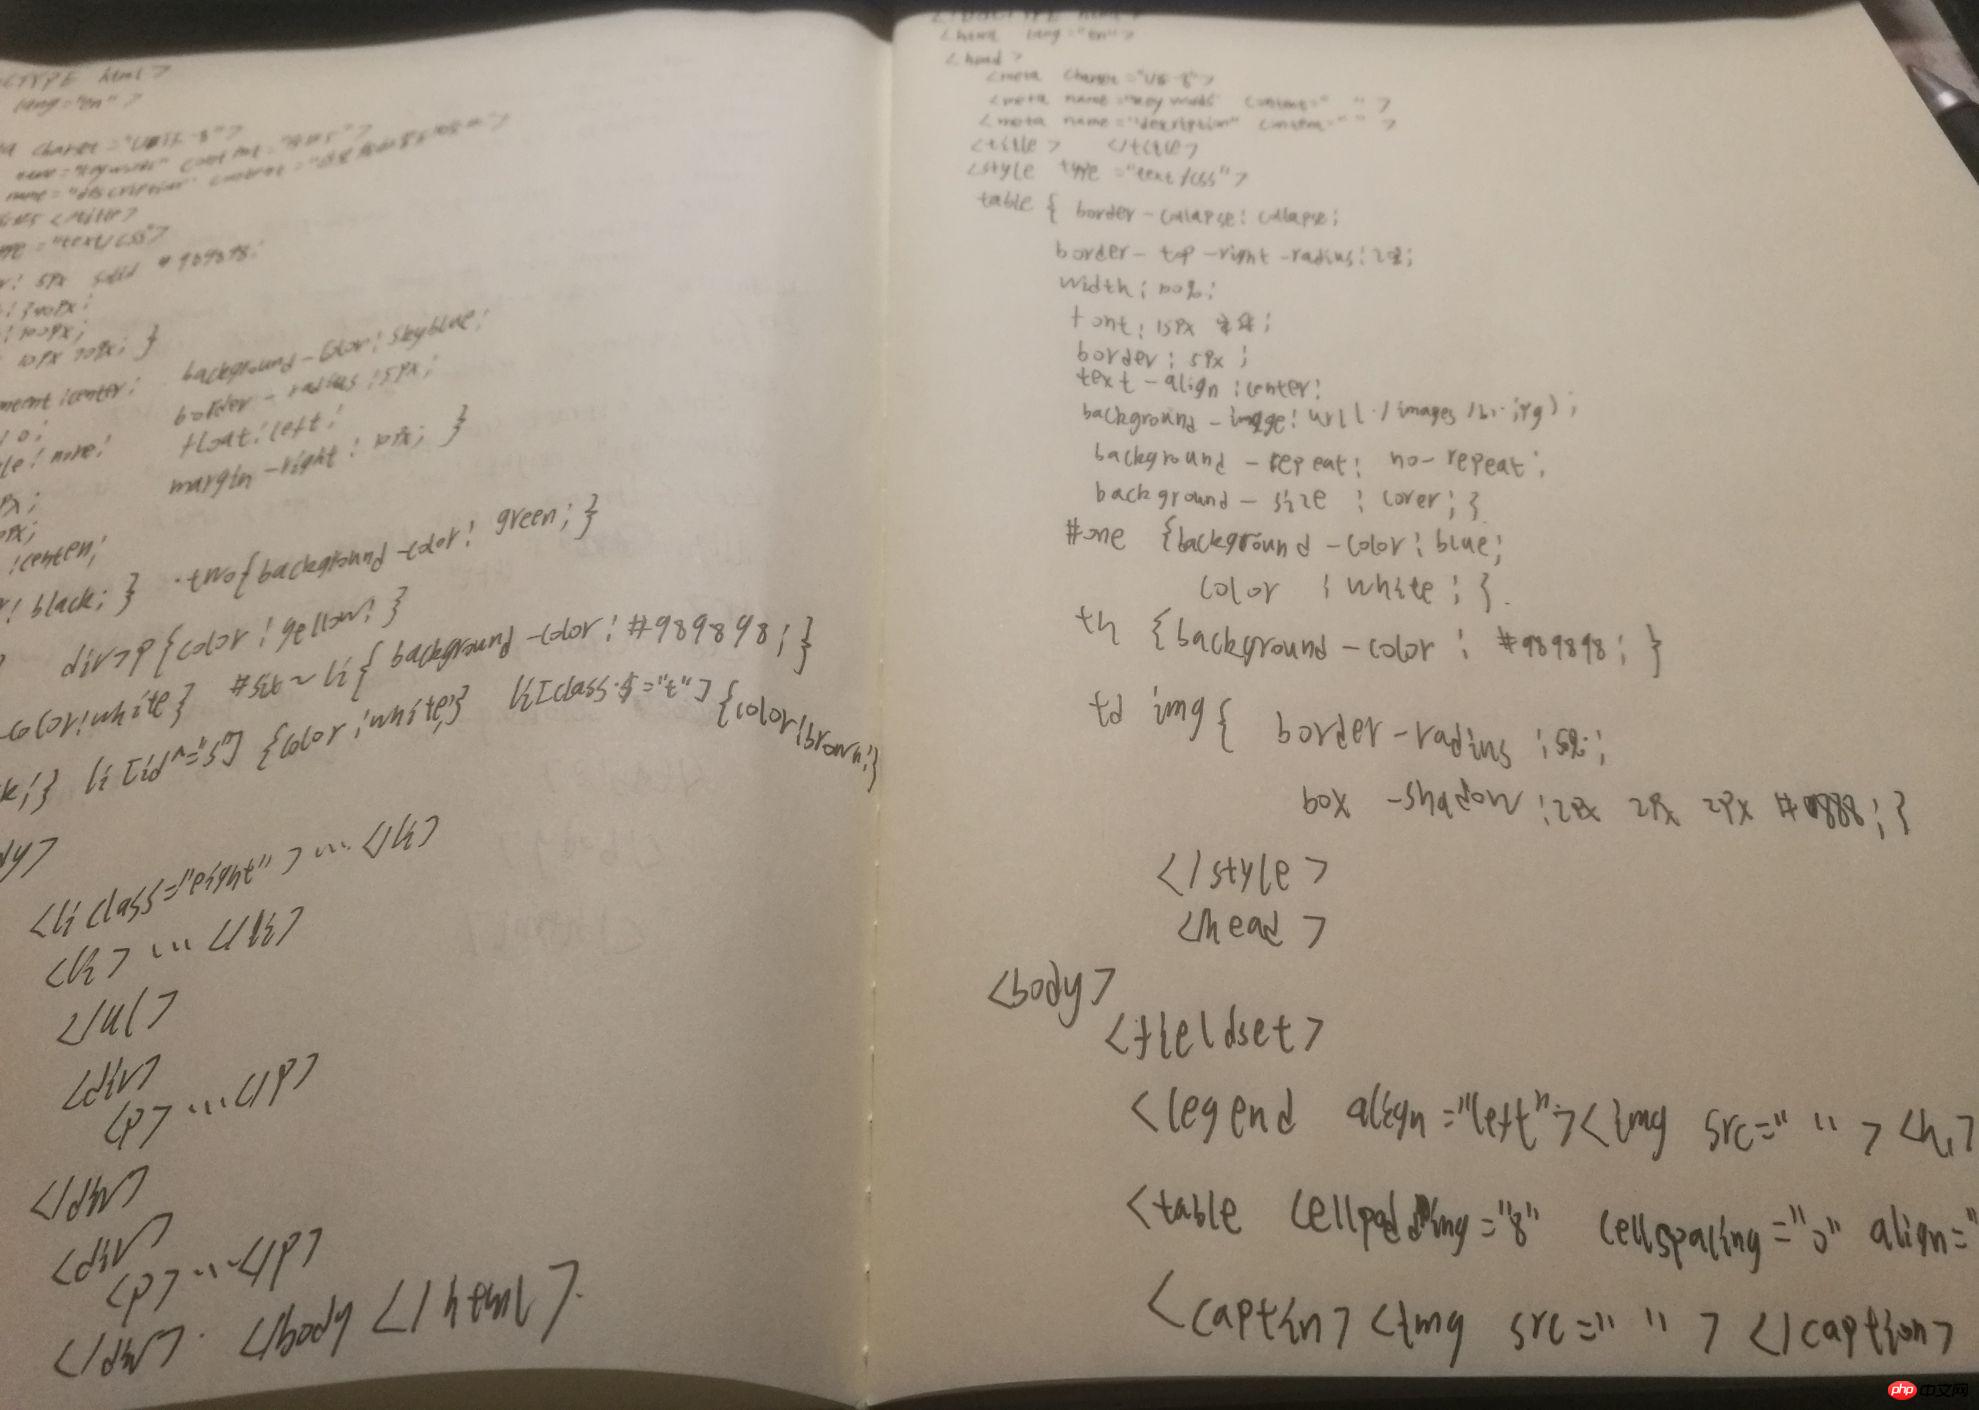 CTYPE html>
lang="en">
charset="UTF-8">
name="keywords" content="
name="description" content="
</title>
="text/css">
: 5px solid #989898;
px;
: 100px;
10px 20px; }
center; background-color: skyblue;
0; border-radius: 5px;
: none; float: left;
px; margin-right: 10px; }
px;
: center;
: black; } .two{background-color: green; }
div>p{color: yellow; }
color: white} #sit~li{background-color: #989898; }
} li[id^="s"] {color: white;} li[class$="t"] {color: brown;}
dy>
<li class="eight">...</li>
<li>...</li>
</ul>
<div>
<p>...</p>
</div>
<div>
<p>...</p>
</div>. </body </html>.
<html lang="en">
<head>
<meta charset="
<meta name="keywords" content=" ">
<meta name="description" content=" ">
<title> </title>
<style type="text/css">
table { border-collapse: collapse;
border-top-right-radius: 2%;
width: 100%;
font: 15px
border: 5px ;
text-align: center;
background-image: url(./images/
background-repeat: no-repeat;
background-size: cover; }
#one {background-color: blue;
color: white; }
th {background-color: #989898; }
td img{ border-radius: 5%;
box-shadow: 2px 2px 2px #888; }
</style>
</head>
<body>
<fieldset>
<legend align="left"><img src=" "><h1>
<table cellpadding="8" cellspacing="0" align="
<captin><img src=" "></caption>
php中文网